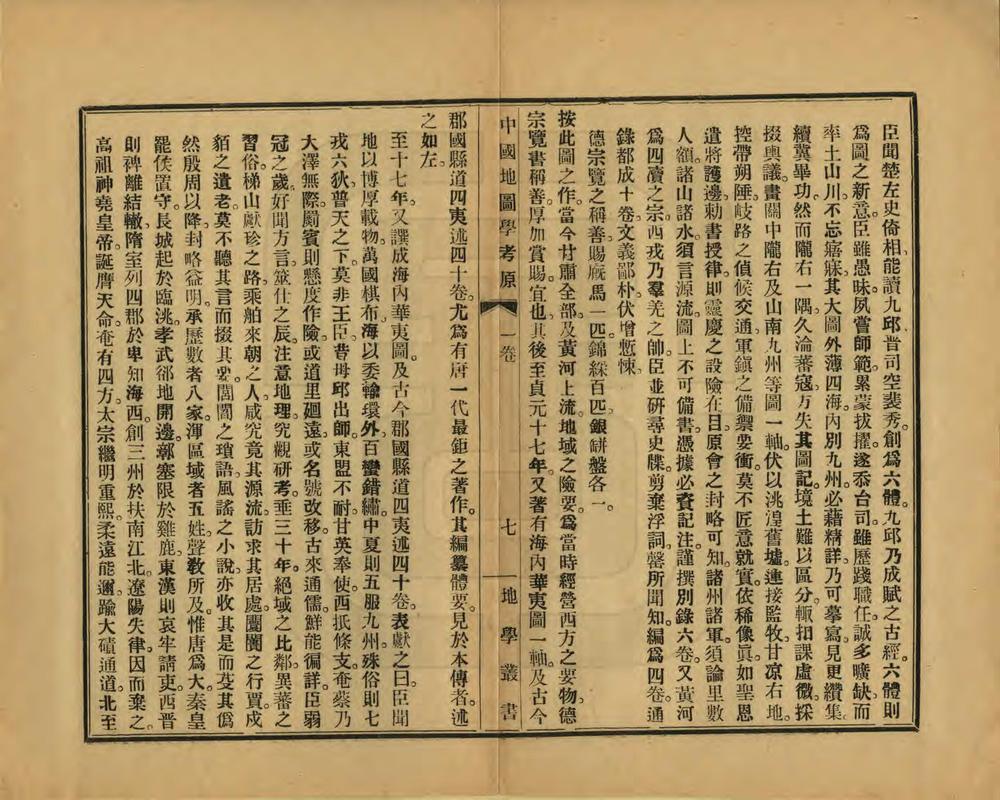 臣聞楚左史倚相能讀九邱晋司空裴秀創爲六體九邱乃成賦之古經六體則
爲圖之新意臣雖愚昧夙嘗師範累蒙拔擢遂忝台司雖歷踐職任誠多曠缺而
率土山川不忘寤寐其大圖外薄四海內別九州必藉精詳乃可摹寫見更纘集
續冀畢功然而隴右一隅久淪蕃寇亏失其圖記境土難以區分輒扣課虛微採
掇輿議畫關中隴右及山南九州等圖一軸伏以洮湟舊墟連接監牧甘凉右地
控帶朔陲岐路之偵候交通軍鎭之備禦要衝莫不匠意就實依稀像眞如聖恩
遣將護邊勅書授律則靈慶之設險在目原會之封略可知諸州諸軍須論里數
人額諸山諸水須言源流圖上不可備書憑據必資記注謹撰別錄六卷又黃河
爲四瀆之宗西戎乃羣羌之帥臣並硏尋史牒剪棄浮詞罄所聞知編爲四卷通
錄都成十卷文義鄙朴伏增慙悚
德宗覽之稱善賜廐馬一匹錦綵百匹銀缾盤各一
按此圖之作當今甘肅全部及黃河上流地域之險要爲當時經營西方之要物德
宗覽書稱善厚加賞賜宜也其後至貞元十七年又著有海內華夷圖一軸及古今
中國地圖學考原 一卷 七 地學叢書
郡國縣道四夷述四十卷尤爲有唐一代最鉅之著作其編纂體要見於本傳者述
之如左
至十七年又譔成海內華夷圖及古今郡國縣道四夷述四十卷表獻之曰臣聞
地以博厚載物萬國棋布海以委輸環外百蠻錯繡中夏則五服九州殊俗則七
戎六狄普天之下莫非王臣昔毋邱出師東盟不耐甘英奉使西抵條支奄蔡乃
大澤無際罽賓則懸度作險或道里廻遠或名號改移古來通儒鮮能徧詳臣弱
冠之歲好聞方言筮仕之辰注意地理究觀硏考垂三十年絕域之比鄰異蕃之
習俗梯山獻珍之路乘舶來朝之人咸究竟其源流訪求其居處闤闠之行賈戍
貊之遺老莫不聽其言而掇其要閭閻之瑣語風謠之小說亦收其是而芟其僞
然殷周以降封略益明承歷數者八家渾區域者五姓聲敎所及惟唐爲大秦皇
罷侯置守長城起於臨洮孝武郤地開邊鄣塞限於雞鹿東漢則哀牢請吏西晋
則裨離結轍隋室列四郡於卑知海西創三州於扶南江北遼陽失律因而棄之
高祖神堯皇帝誕膺天命奄有四方太宗繼明重熙柔遠能邇踰大磧通道北至